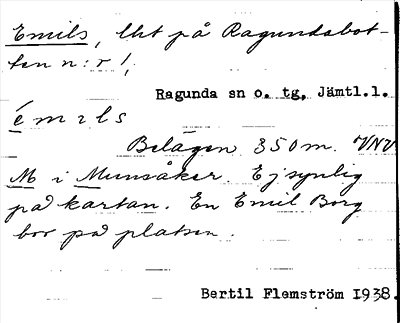 Emils, lht på Ragundabot-
ten n:r 1,
Ragunda sn o. tg, Jämtl.l.
é m ɩ l s
Belägen 350 m. VNV
M i Munsåker. Ej synlig
på kartan. En Emil Borg
bor på platsen.
Bertil Flemström 1938.